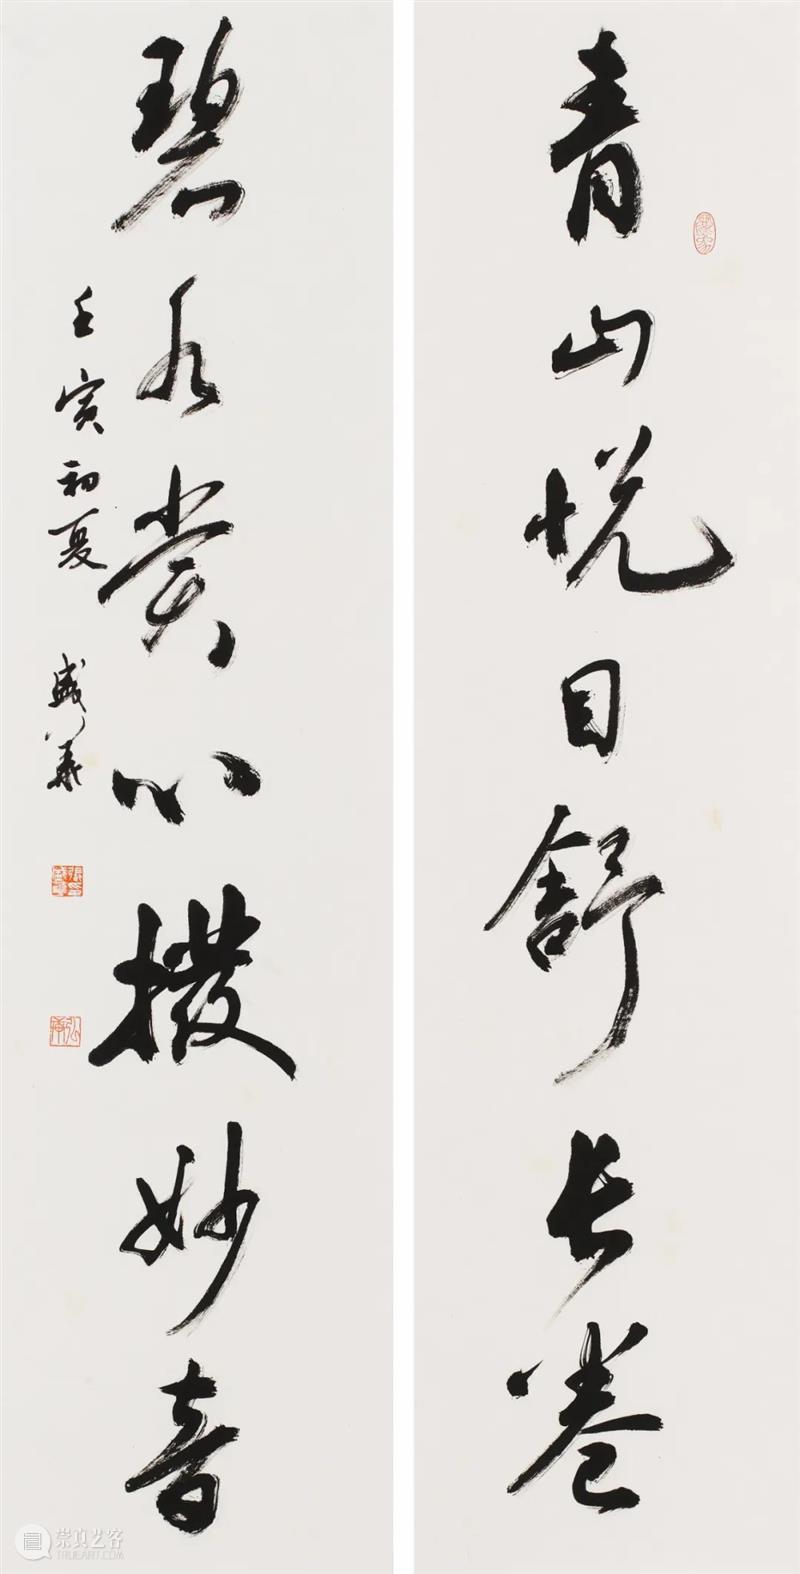 青山悦目舒长卷
碧水赏心拨妙音
壬寅初夏 盛义
崇真艺客
TRUEART.COM